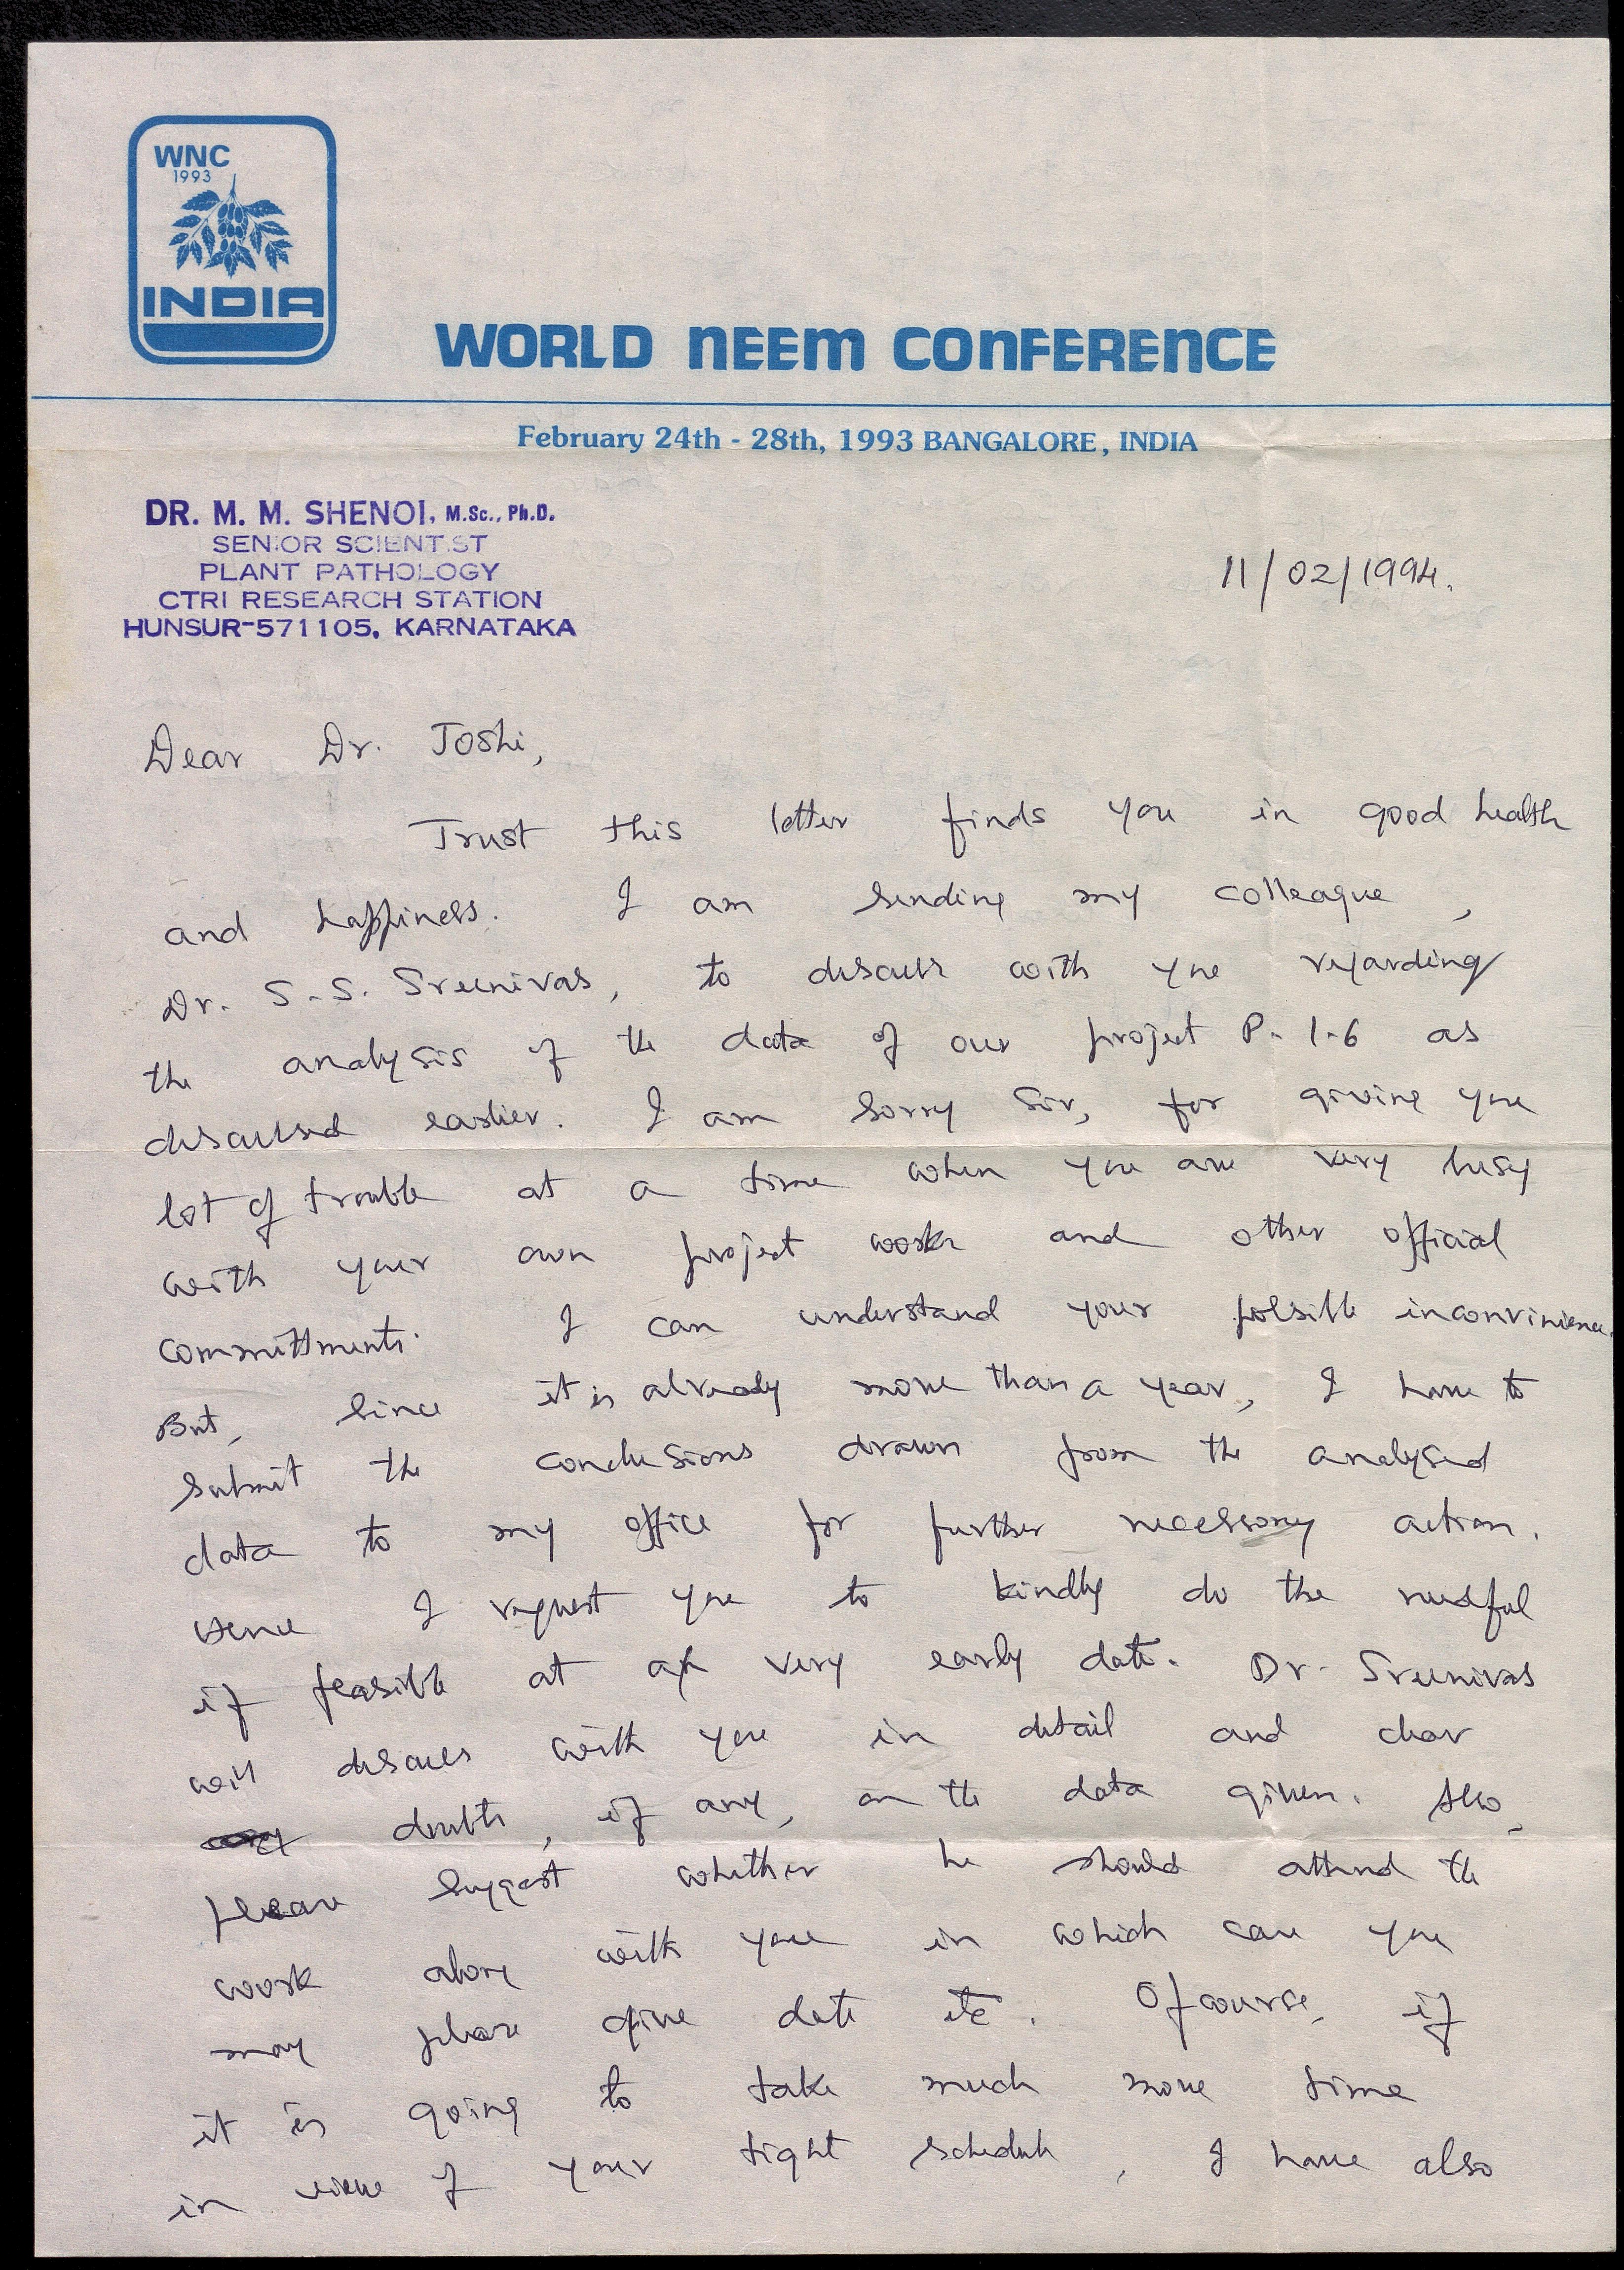 WNC
1993
INDIA
WORLD NEEM CONFERENCE
February 24th - 28th, 1993 BANGALORE, INDIA
DR. M. M. SHENOI, M.Sc., Ph.D.
SENIOR SCIENTIST
PLANT PATHOLOGY
CTRI RESEARCH STATION
HUNSUR-571105, KARNATAKA
11/02/1994.
Dear Dr. Joshi,
Trust this letter finds you in good health
and happiness. I am sending my colleague,
Dr. S.S. Sreenivas, to discuss with you regarding
the analysis of the data of our project P-1-6 as
discussed earlier. I am sorry Sir, for giving you
lot of trouble at a time when you are very busy
with your own project work and other official
committments. I can understand your possible inconvinience.
But, since it is already more than a year, I have to
submit the conclusions drawn from the analysed
data to my office for further necessary action.
Hence I request you to kindly do the needful
if feasible at a very early date. Dr. Sreenivas
will discuss with you in detail and clear
doubts, if any, on the data given. Also,
please suggest whether he should attend the
work along with you in which case you
may please give date etc. Ofcourse, if
it is going to take much more time
in view of your tight schedule, I have also